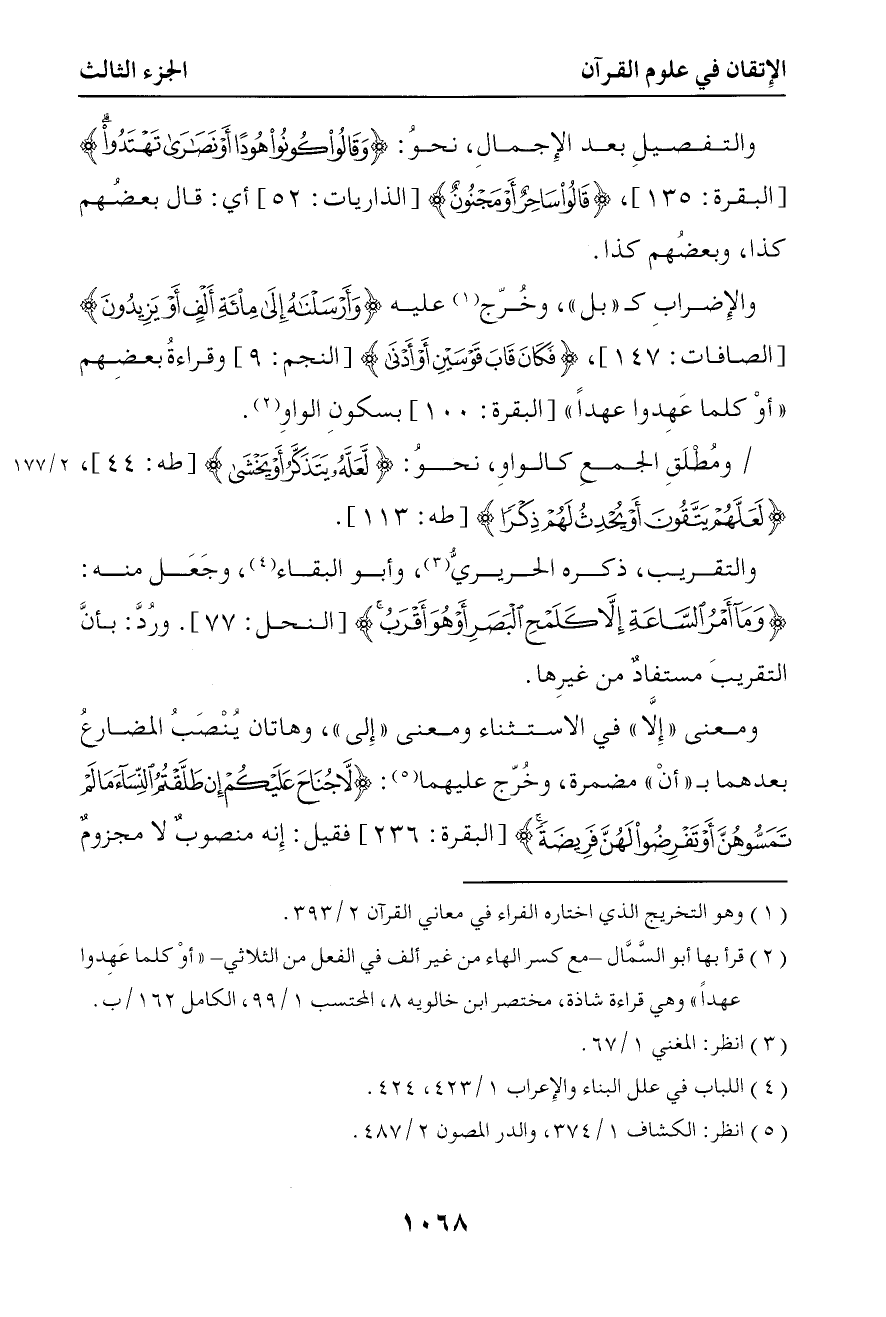 الإتقان في علوم القرآن الجزء الثالث
والتفصيلِ بعد الإجمال، نحوُ: ﴿وَقَالُواْ كُونُواْ هُودًا أَوْ نَصَٰرَىٰ تَهْتَدُواْ﴾
[البقرة: ١٣٥]، ﴿قَالُواْ سَاحِرٌ أَوْ مَجْنُونٌ﴾ [الذاريات: ٥٢] أي: قال بعضُهم
كذا، وبعضُهم كذا.
والإضرابِ كـ «بل»، وخُرِّج(١) عليه ﴿وَأَرْسَلْنَٰهُ إِلَىٰ مِاْئَةِ أَلْفٍ أَوْ يَزِيدُونَ﴾
[الصافات: ١٤٧]، ﴿فَكَانَ قَابَ قَوْسَيْنِ أَوْ أَدْنَىٰ﴾ [النجم: ٩] وقراءةُ بعضِهم
«أوْ كلما عَهِدوا عهداً» [البقرة: ١٠٠] بسكونِ الواو(٢).
/ ومُطْلَقِ الجمعِ كالواو، نحوُ: ﴿لَّعَلَّهُۥ يَتَذَكَّرُ أَوْ يَخْشَىٰ﴾ [طه: ٤٤]، ١٧٧/٢
﴿لَعَلَّهُمْ يَتَّقُونَ أَوْ يُحْدِثُ لَهُمْ ذِكْرًا﴾ [طه: ١١٣].
والتقريب، ذكره الحريريُّ(٣)، وأبو البقاء(٤)، وجَعَل منه:
﴿وَمَآ أَمْرُ ٱلسَّاعَةِ إِلَّا كَلَمْحِ ٱلْبَصَرِ أَوْ هُوَ أَقْرَبُ ۚ﴾ [النحل: ٧٧]. ورُدَّ: بأنَّ
التقريبَ مستفادٌ من غيرِها.
ومعنى «إلَّا» في الاستثناء ومعنى «إلى»، وهاتان يُنْصَبُ المضارعُ
بعدهما بـ «أنْ» مضمرة، وخُرِّج عليهما(٥): ﴿لَّا جُنَاحَ عَلَيْكُمْ إِن طَلَّقْتُمُ ٱلنِّسَآءَ مَا لَمْ
تَمَسُّوهُنَّ أَوْ تَفْرِضُواْ لَهُنَّ فَرِيضَةً ۚ﴾ [البقرة: ٢٣٦] فقيل: إنه منصوبٌ لا مجزومٌ
(١) وهو التخريج الذي اختاره الفراء في معاني القرآن ٣٩٣/٢.
(٢) قرأ بها أبو السَّمَّال –مع كسر الهاء من غير ألف في الفعل من الثلاثي– «أوْ كلما عَهِدوا
عهداً» وهي قراءة شاذة، مختصر ابن خالويه ٨، المحتسب ٩٩/١، الكامل ١٦٢/ب.
(٣) انظر: المغني ٦٧/١.
(٤) اللباب في علل البناء والإعراب ٤٢٣/١، ٤٢٤.
(٥) انظر: الكشاف ٣٧٤/١، والدر المصون ٤٨٧/٢.
١٠٦٨